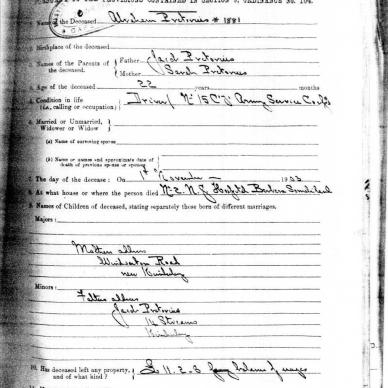 CONTAINED IN SECTION 9, ORDINANCE NO. 104.
Name of the Deceased Abraham Pretorius * 1881
Birthplace of the deceased
Names of the Parents of the deceased. Father Jacob Pretorius
Mother Sarah Pretorius
Age of the deceased 22 years months
Condition in life Driver No 15 Coy Army Service Corps
(i.e. calling or occupation)
Married or Unmarried,
Widower or Widow
(a) Name of surviving spouse
(b) Name or names and approximate date of
death of previous spouse or spouses
7. The day of the decease: On 1st November 1903
8. At what house or where the person died No. 2. N. G. Hospital
9. Names of Children of deceased, stating separately those born of different marriages.
Majors:
Mothers address
Road
Minors:
Fathers address
Jacob Pretorius
10. Has deceased left any property,
and of what kind? £ 11. 2. 3 being balance of wages